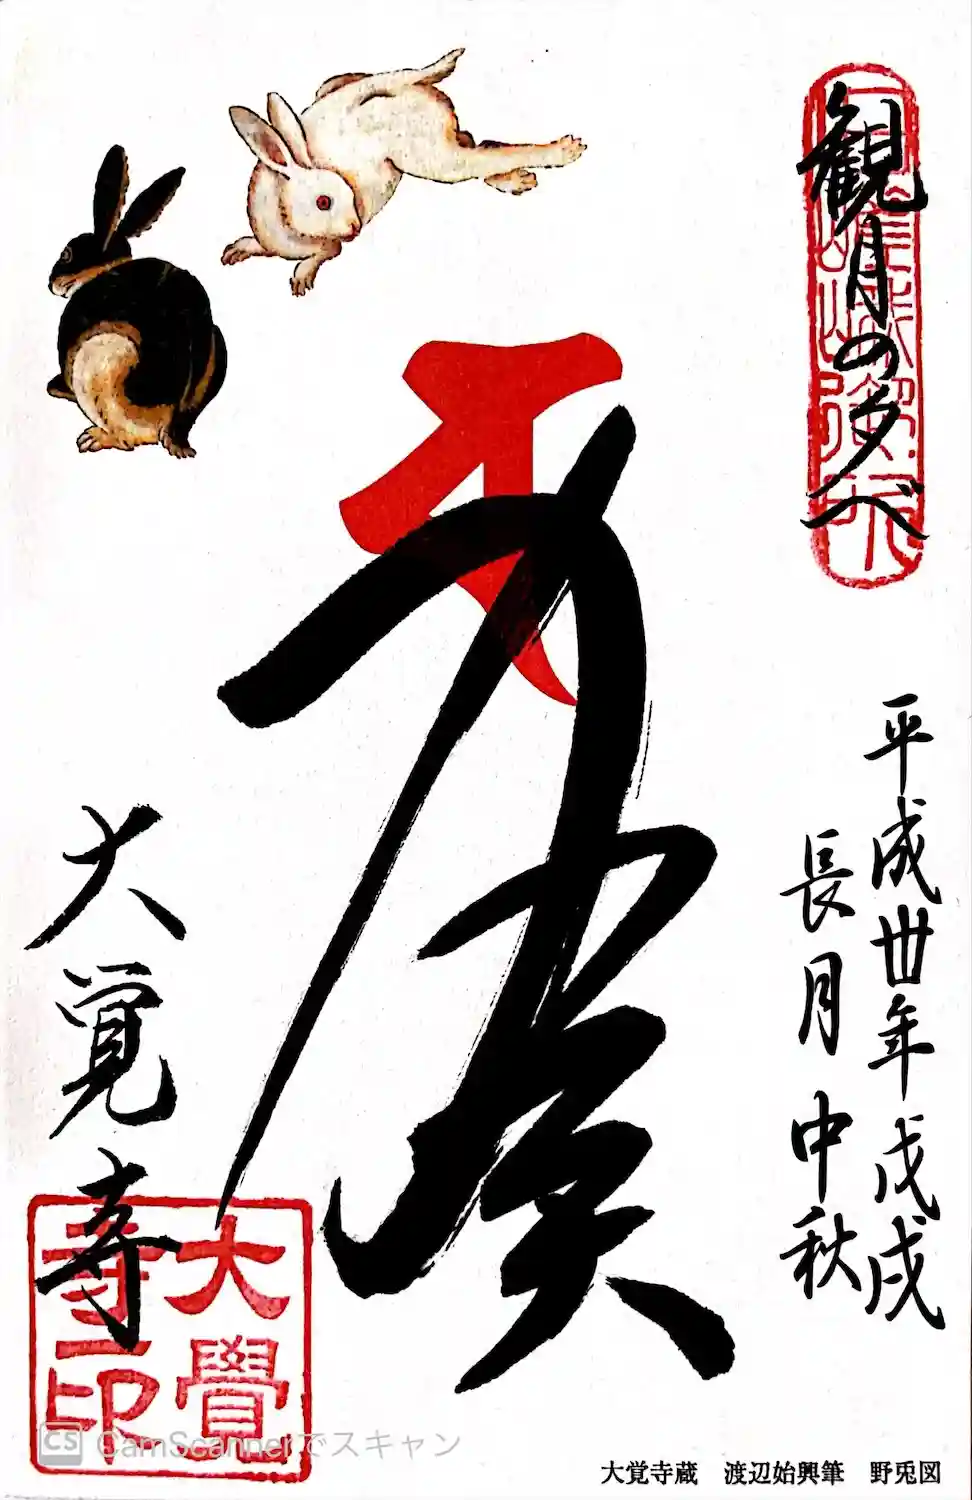 観月の夕べ
平成卅年戊戌
長月中秋
大覚寺
大覺
寺印
大覚寺蔵　渡辺始興筆　野兎図
CS CamScannerでスキャン